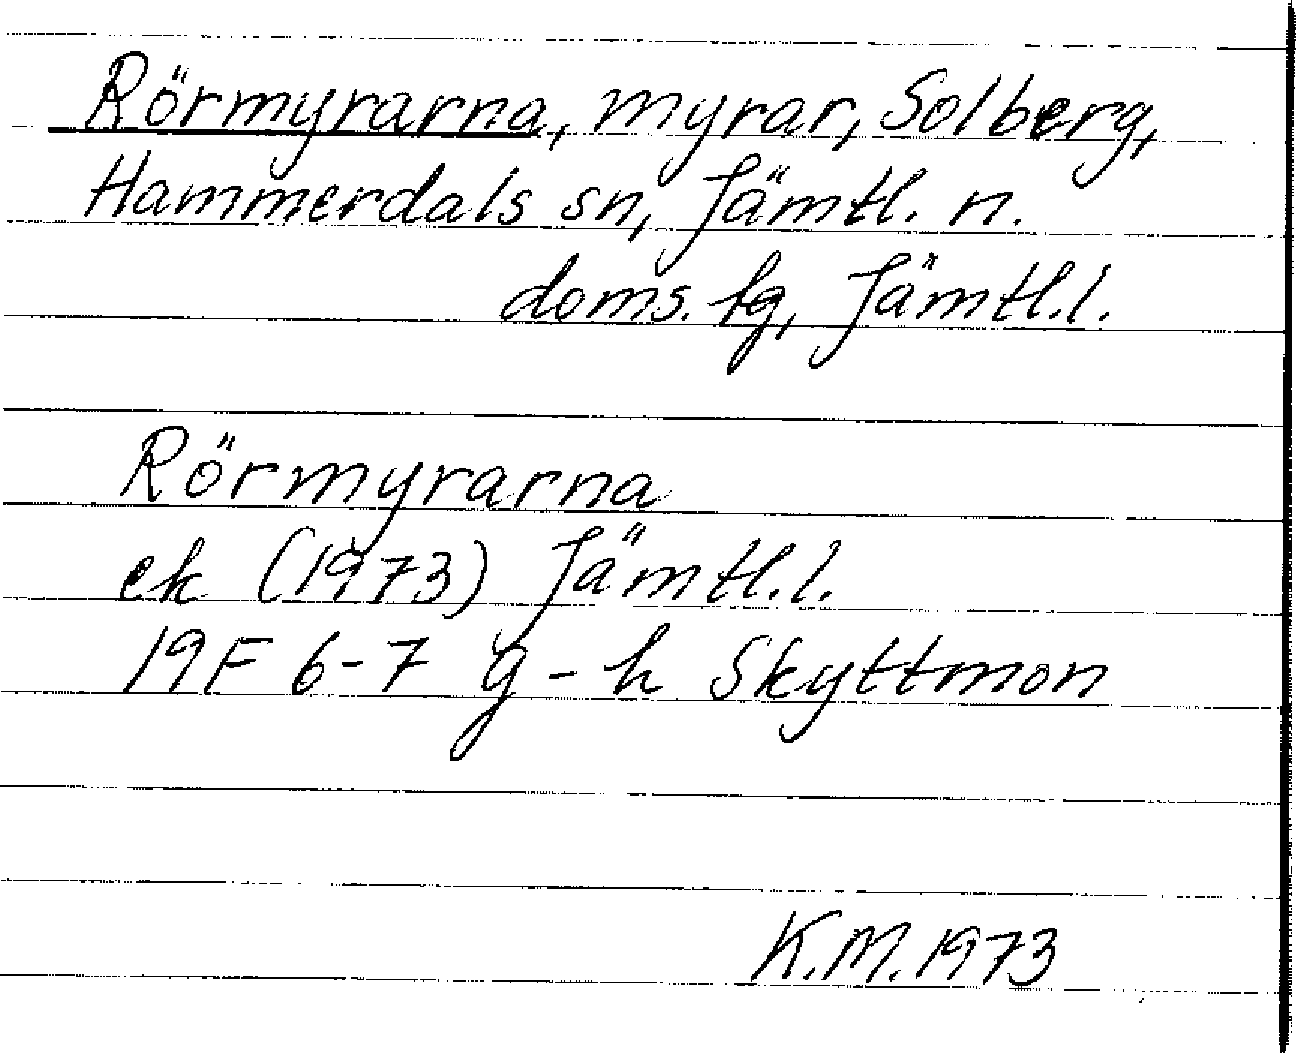 Rörmyrarna, myrar, Solberg,
Hammerdals sn, Jämtl. n.
doms. fg, Jämtl.l.
Rörmyrarna
ek (1973) Jämtl.l.
19F 6-7 g-h Skyttmon
K.M.1973